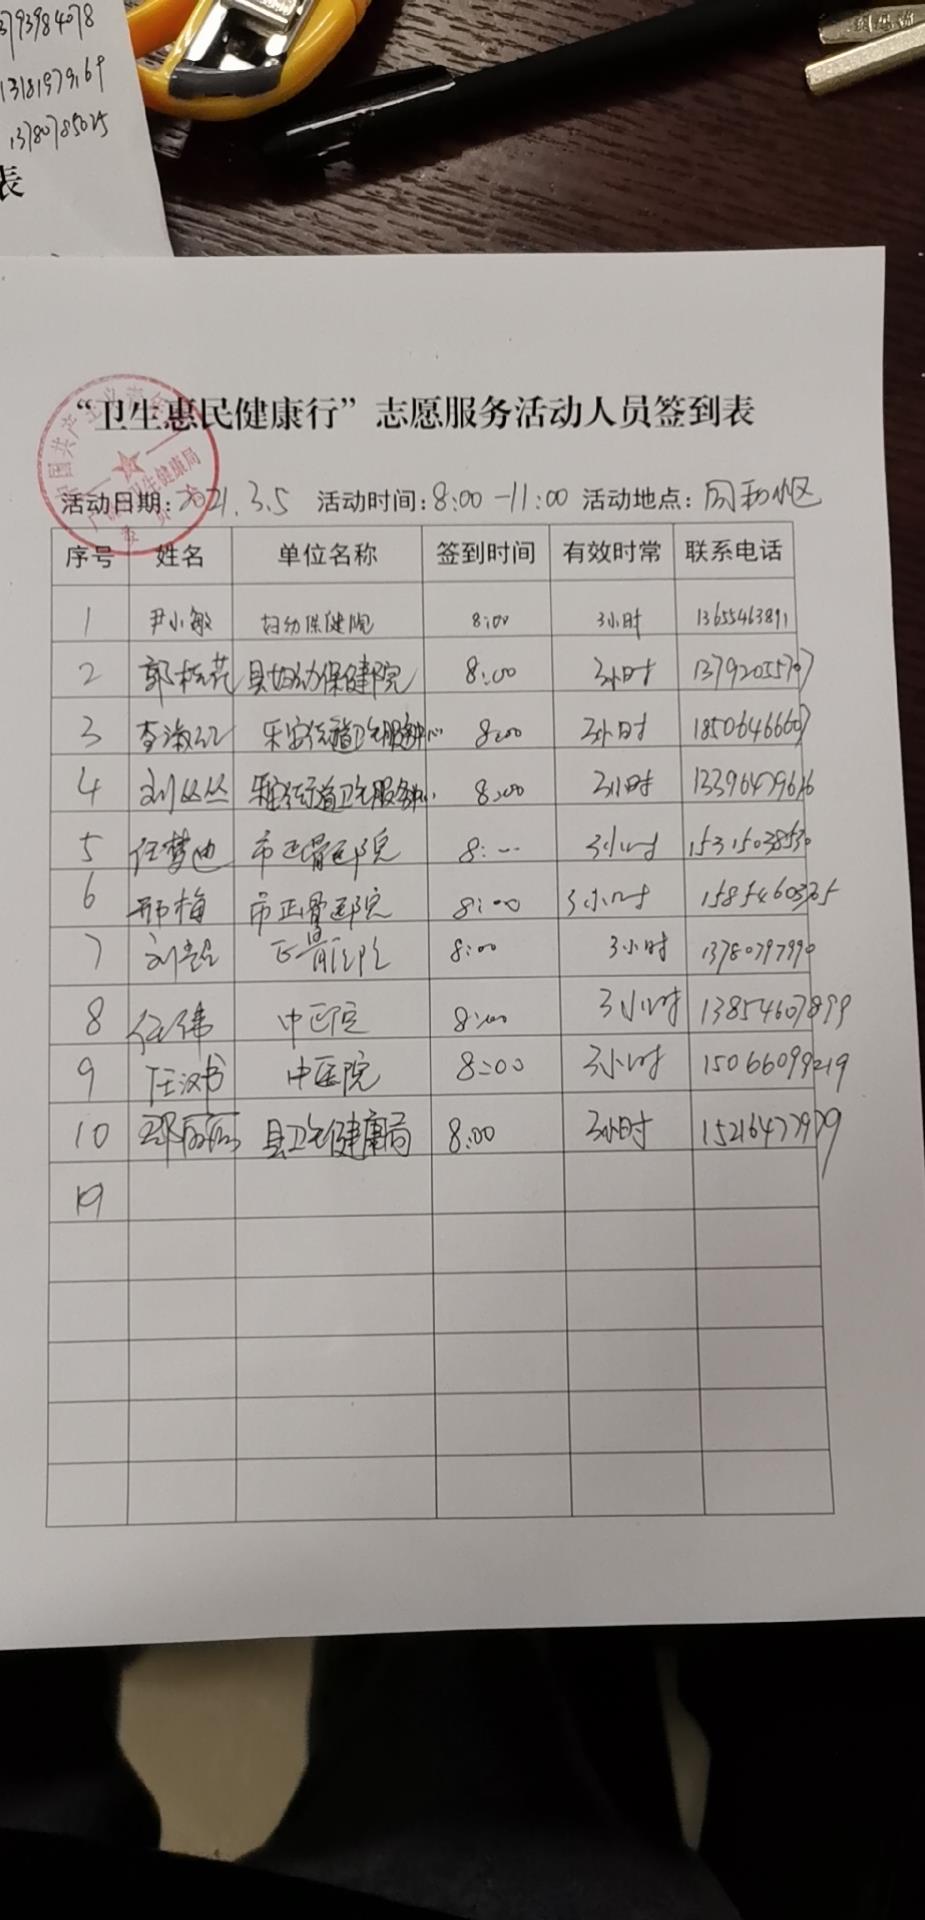 13181979169
13780785025
表
“卫生惠民健康行”志愿服务活动人员签到表
活动日期:2021.3.5 活动时间:8:00-11:00 活动地点:同和小区
序号 姓名 单位名称 签到时间 有效时常 联系电话
1 尹小敏 妇幼保健院 8:00 3小时 13655463891
2 郭桂花 县妇幼保健院 8:00 3小时 13792055767
3 李海红 乐安街道卫生服务中心 8:00 3小时 18506466607
4 刘丛丛 乐安街道卫生服务中心 8:00 3小时 13396479616
5 任梦迪 市正骨医院 8:00 3小时 15315038530
6 邢梅 市正骨医院 8:00 3小时 15854660325
7 正骨医院 8:00 3小时 13780797990
8 任伟 中医院 8:00 3小时 13854607899
9 任汉书 中医院 8:00 3小时 15066099219
10 县卫生健康局 8:00 3小时 15216477979
19